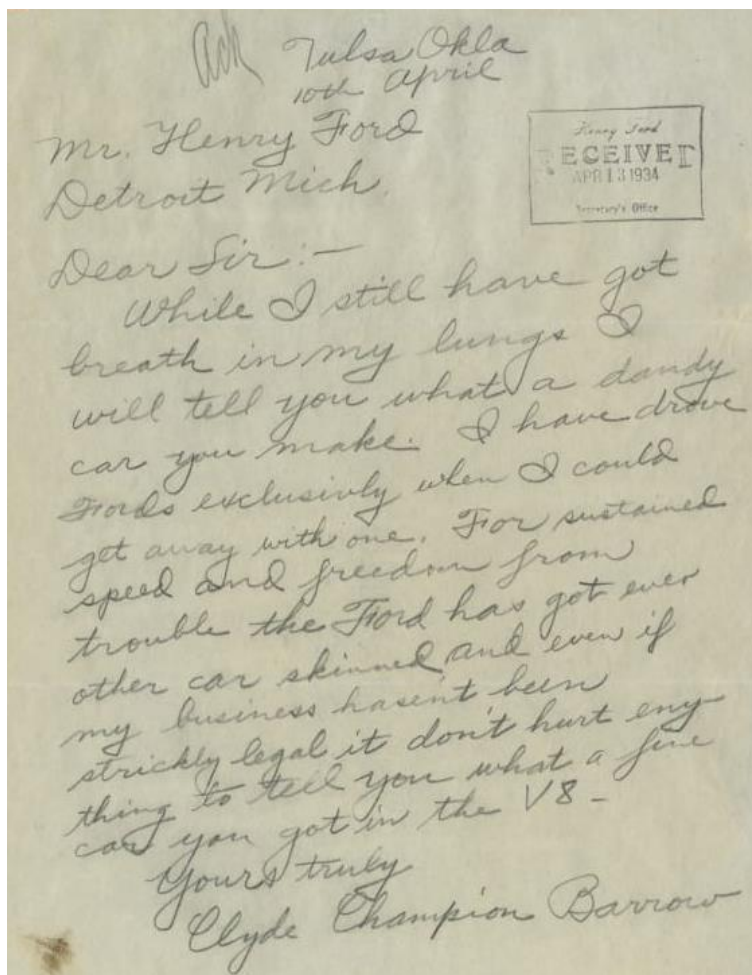 Ack
Tulsa Okla
10th April
Mr. Henry Ford
Detroit Mich.
Henry Ford
RECEIVED
APR 13 1934
Secretary's Office
Dear Sir:—
While I still have got
breath in my lungs I
will tell you what a dandy
car you make. I have drove
Fords exclusivly when I could
get away with one. For sustained
speed and freedom from
trouble the Ford has got ever
other car skinned, and even if
my business hasen't been
strickly legal it don't hurt eny-
thing to tell you what a fine
car you got in the V8 –
Yours truly
Clyde Champion Barrow